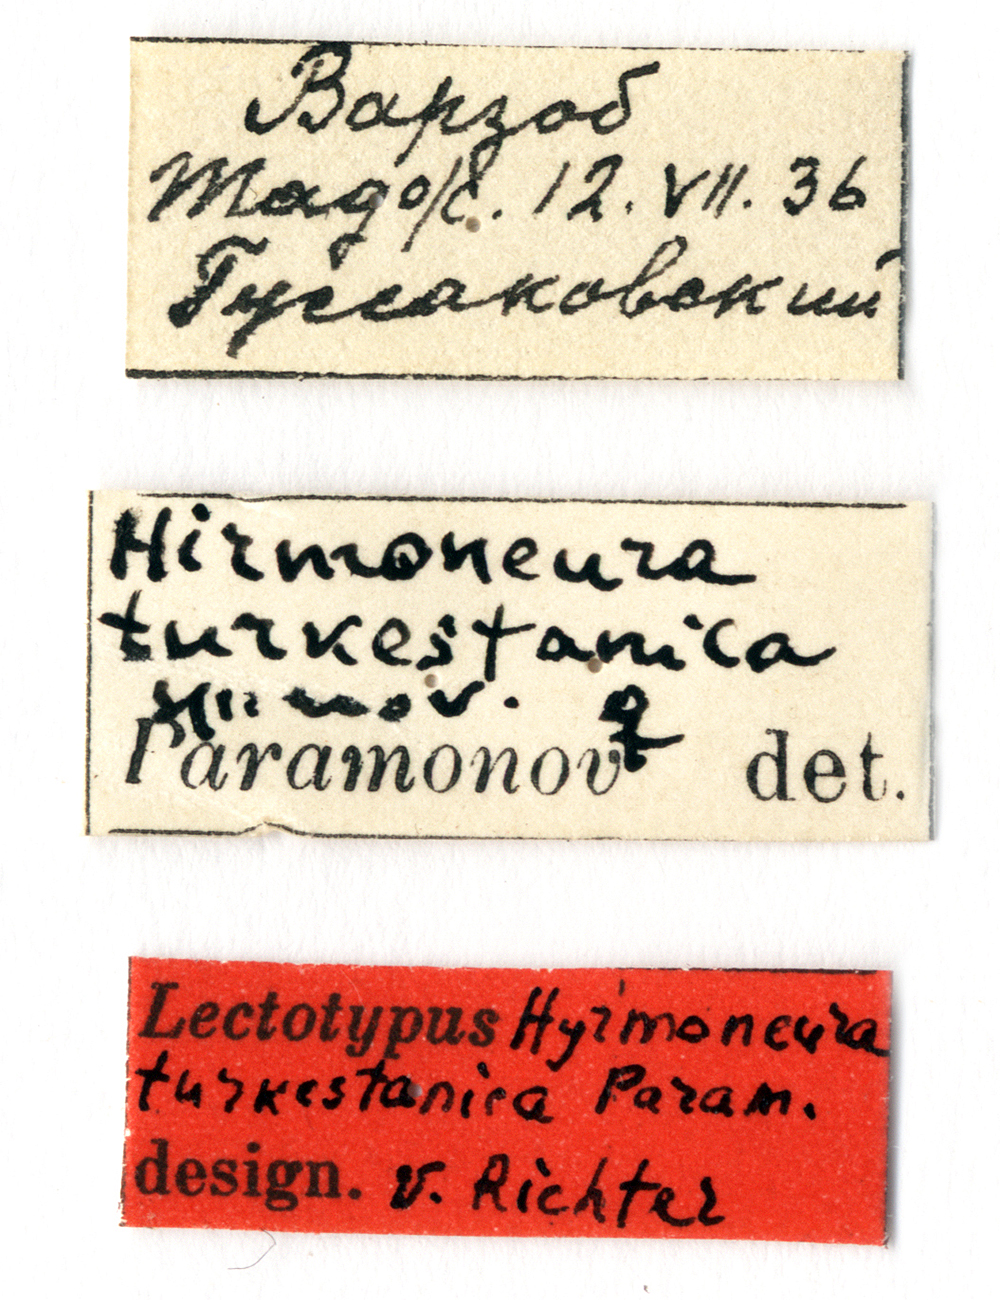 Варзоб
Тадж. 12. VII. 36
Гуссаковский
Hirmoneura
turkestanica
nov. ♀
Paramonov det.
Lectotypus Hyrmoneura
turkestanica Param.
design. V. Richter